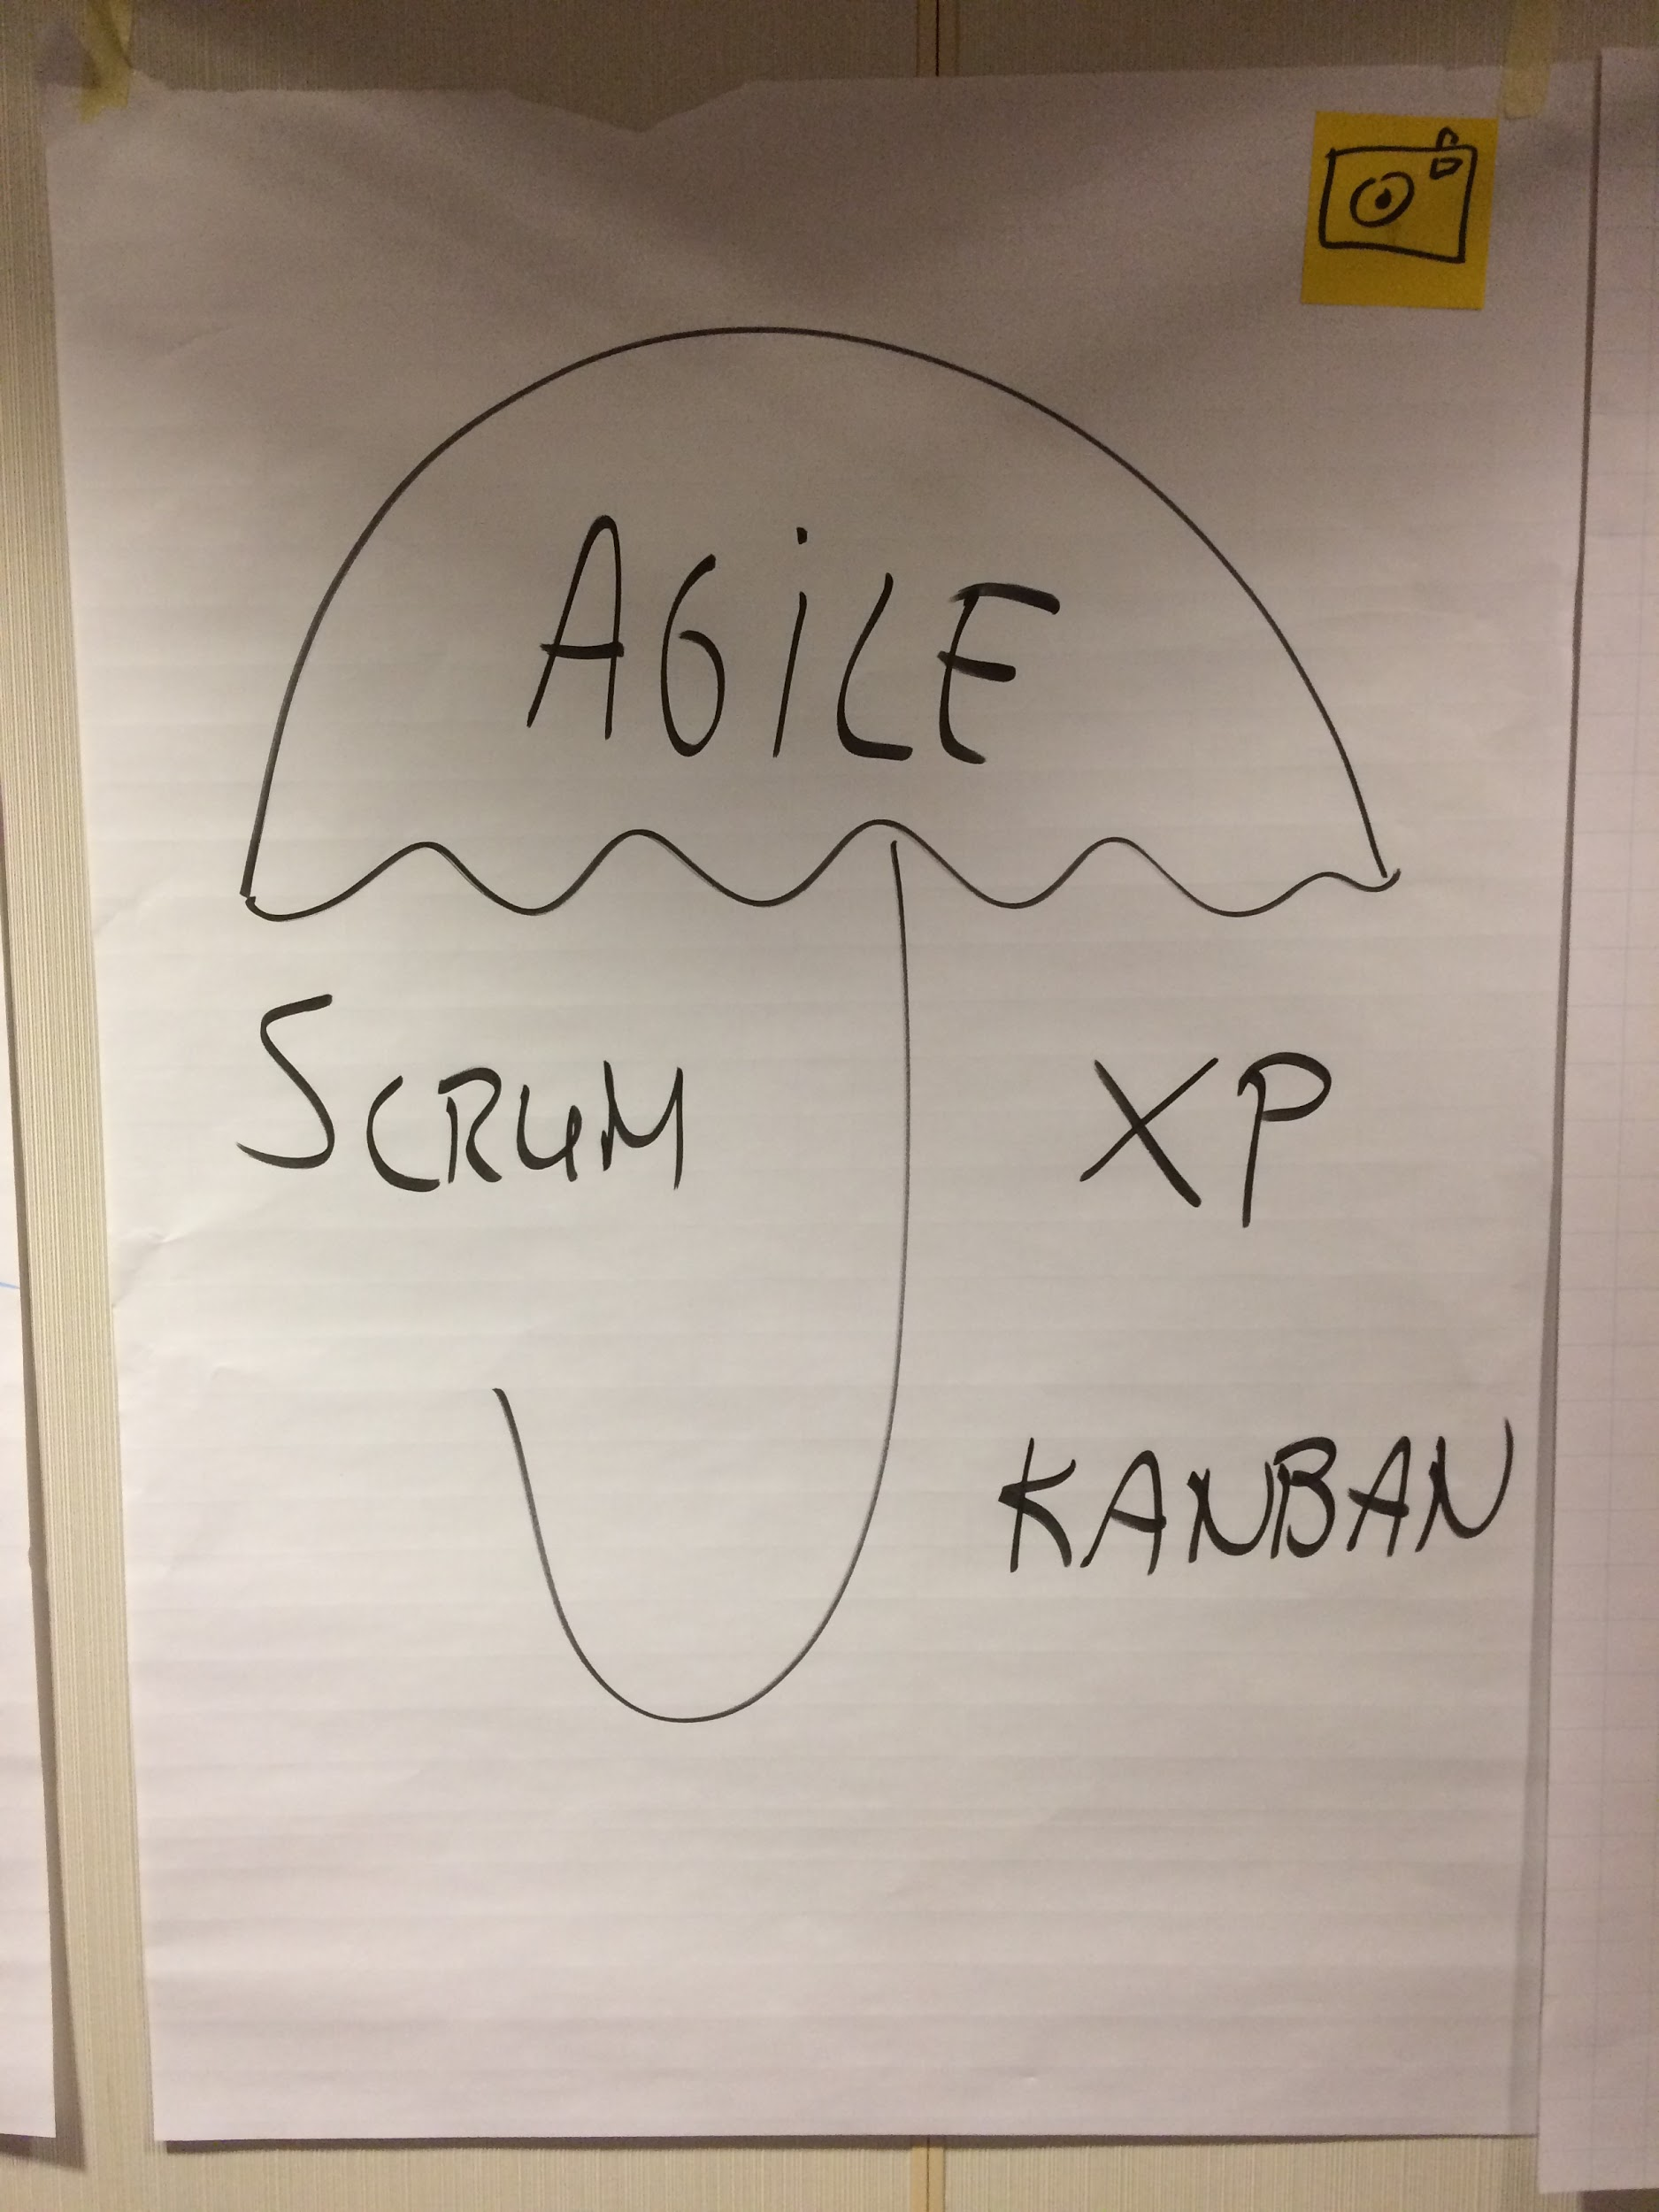 AGiLE
SCRUM
XP
KANBAN